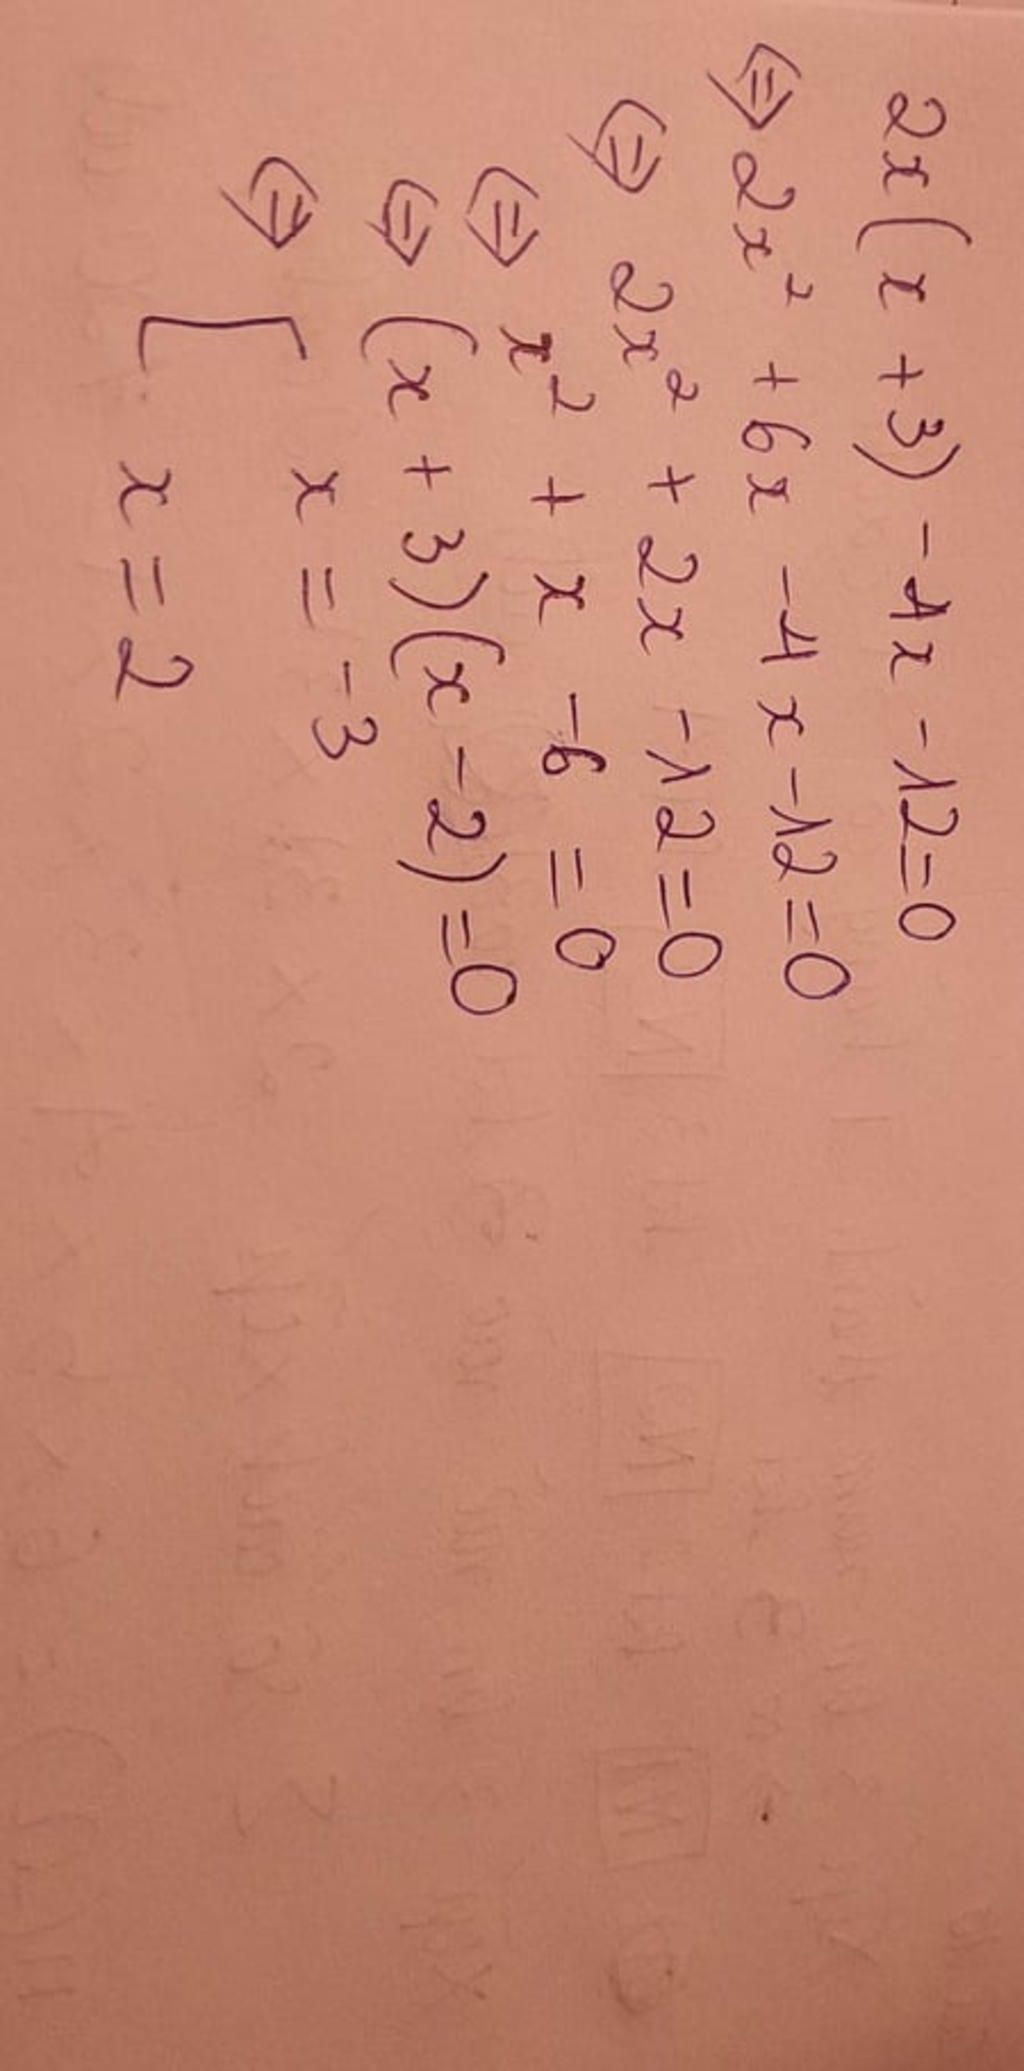 2x(x+3)-4x-12=0
⇔ 2x² +6x -4x-12=0
⇔ 2x² + 2x -12=0
⇔ x² + x -6 =0
⇔ (x+3)(x-2)=0
⇔ [ x = -3
x = 2